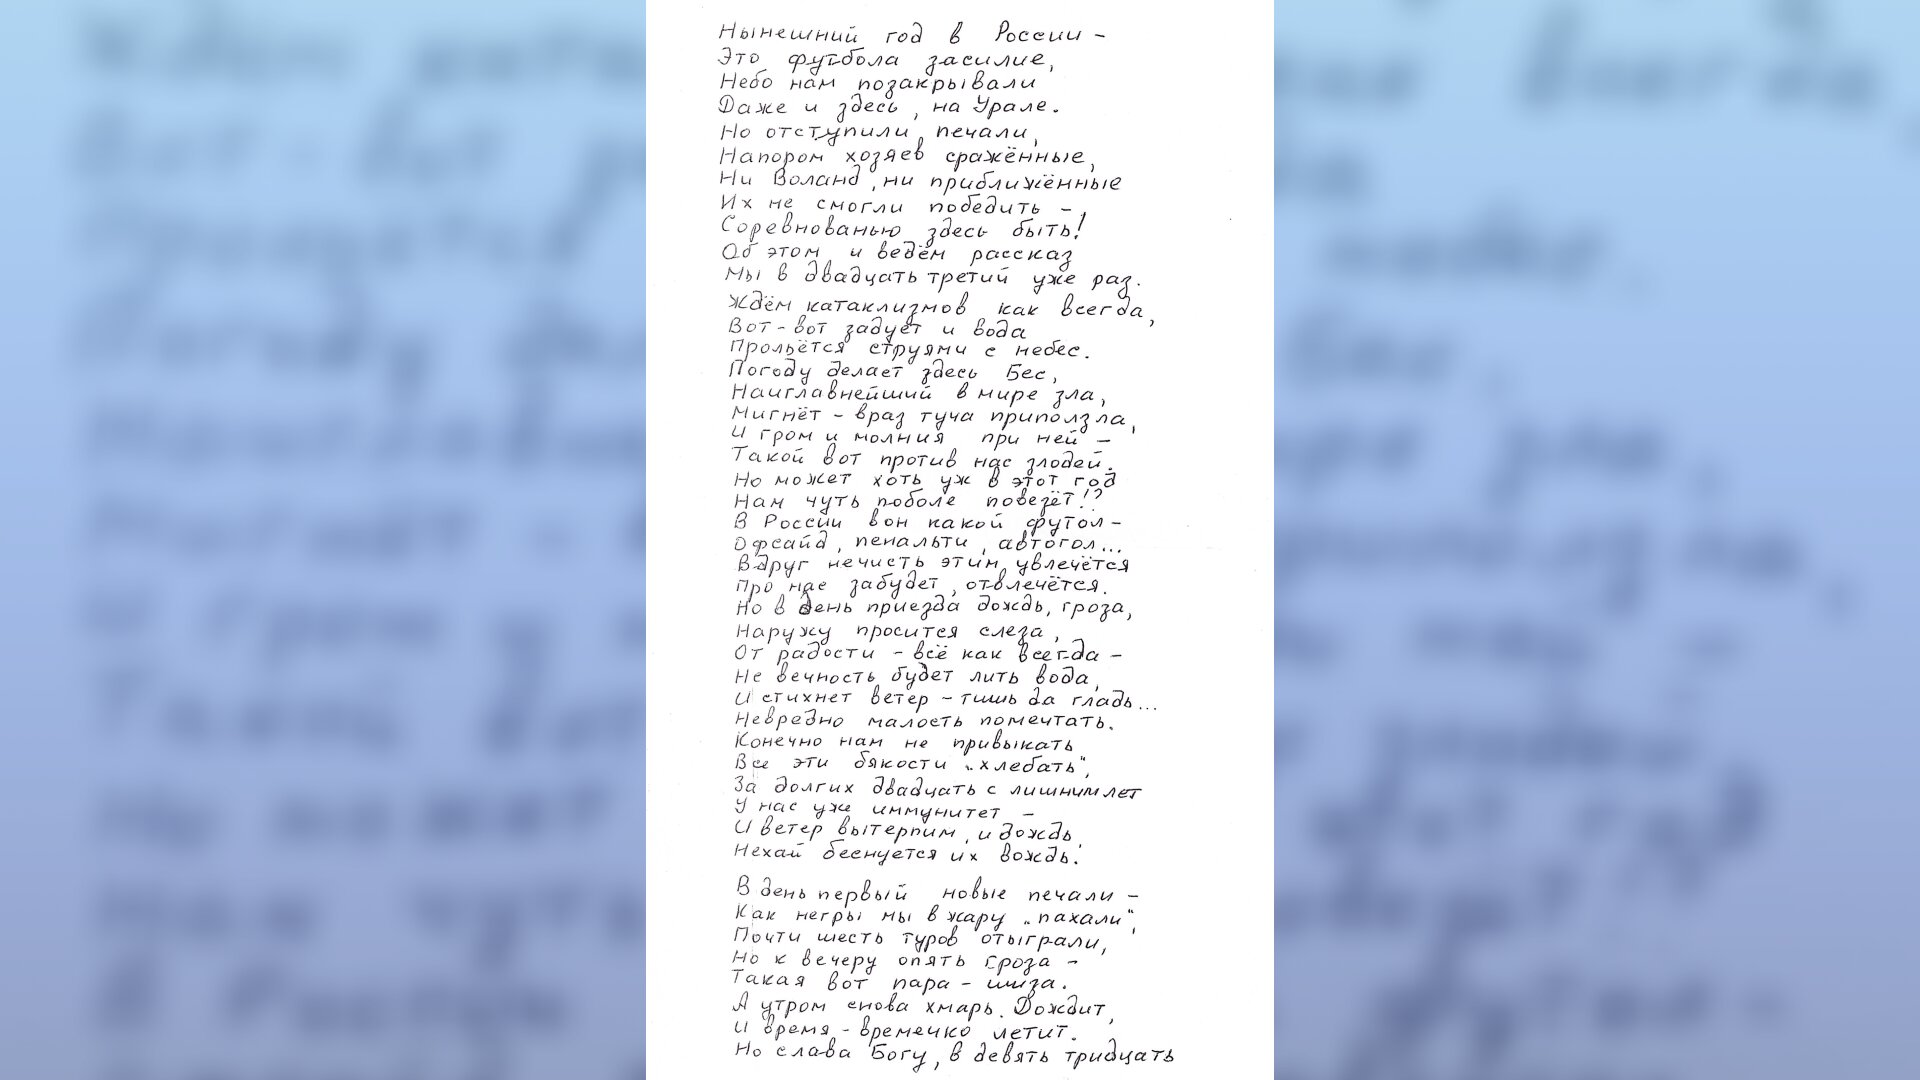 Нынешний год в России -
Это футбола засилие,
Небо нам позакрывали
Даже и здесь, на Урале.
Но отступили печали,
Напором хозяев сражённые,
Ни Воланд, ни приближённые
Их не смогли победить -
Соревнованью здесь быть!
Об этом и ведём рассказ
Мы в двадцать третий уже раз.
Ждём катаклизмов как всегда,
Вот-вот задует и вода
Прольётся струями с небес.
Погоду делает здесь Бес,
Наиглавнейший в мире зла,
Мигнёт - враз туча приползла,
И гром и молния при ней -
Такой вот против нас злодей.
Но может хоть уж в этот год
Нам чуть поболе повезёт!?
В России вон какой футол -
Офсайд, пенальти, автогол...
Вдруг нечисть этим увлечётся
Про нас забудет, отвлечётся.
Но в день приезда дождь, гроза,
Наружу просится слеза,
От радости - всё как всегда -
Не вечность будет лить вода,
И стихнет ветер - тишь да гладь...
Невредно малость помечтать.
Конечно нам не привыкать
Все эти бякости "хлебать",
За долгих двадцать с лишним лет
У нас уже иммунитет -
И ветер вытерпим, и дождь,
Нехай беснуется их вождь.
В день первый новые печали -
Как негры мы в жару "пахали",
Почти шесть туров отыграли,
Но к вечеру опять гроза -
Такая вот пара - шиза.
А утром снова хмарь. Дождит,
И время - времечко летит.
Но слава Богу, в девять тридцать